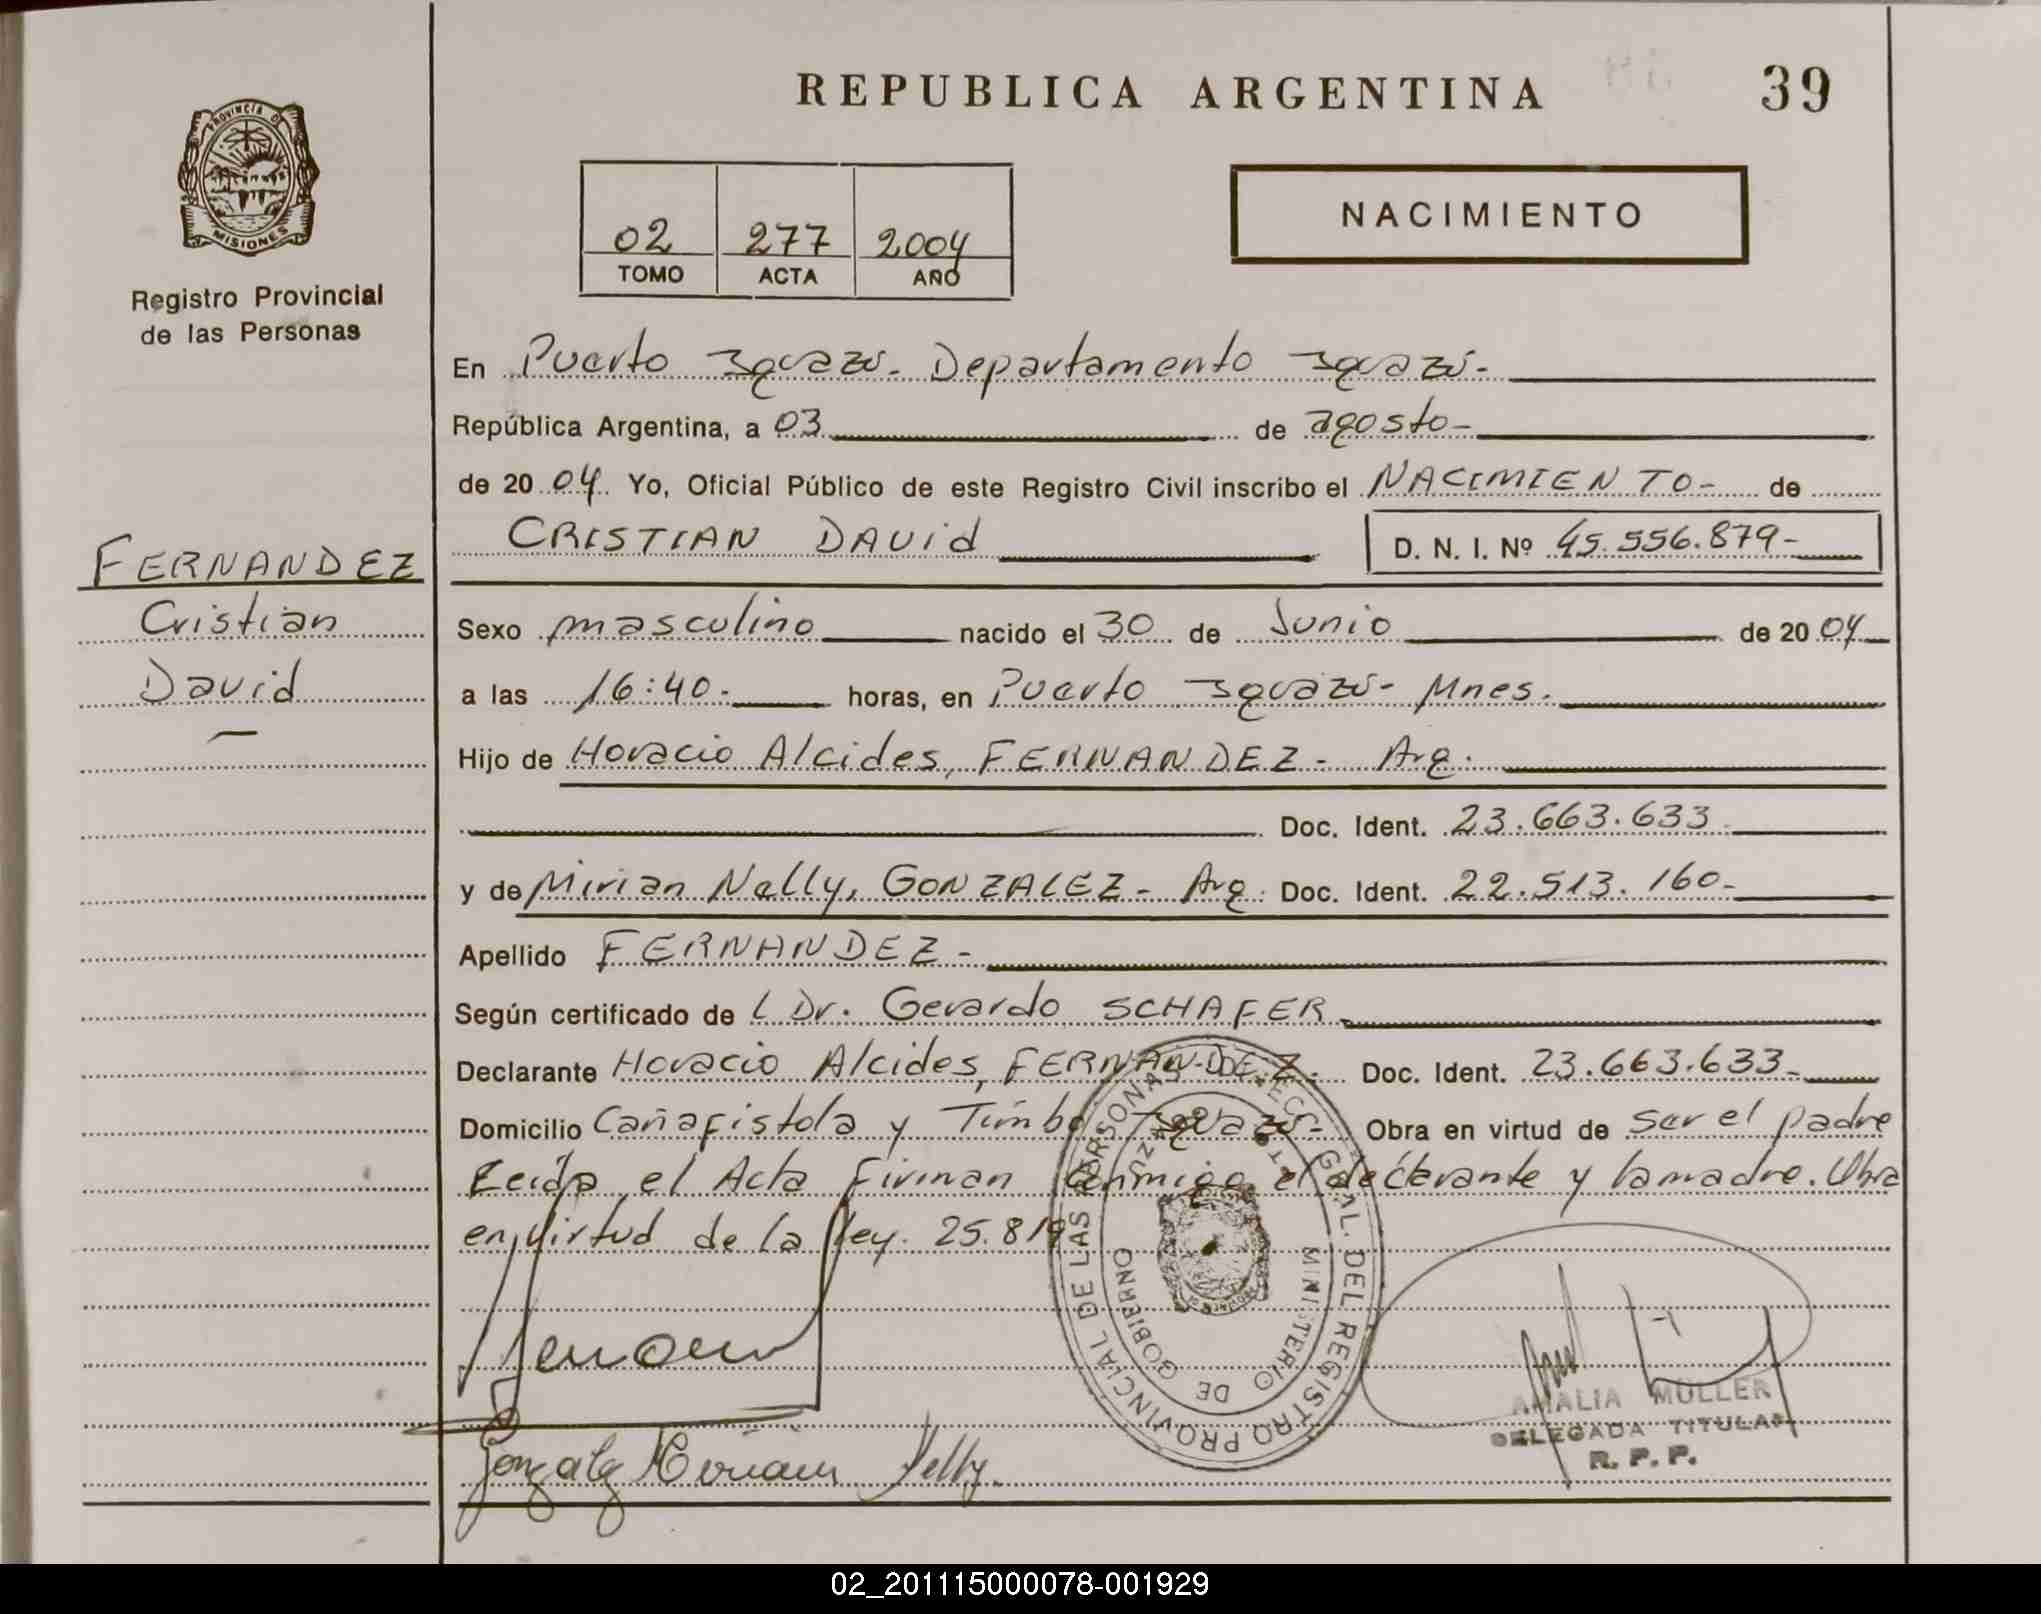 REPUBLICA ARGENTINA 39
PROVINCIA D
MISIONES
Registro Provincial
de las Personas
02 277 2004
TOMO ACTA AÑO
NACIMIENTO
En Puerto Iguazú. Departamento Iguazú.
República Argentina, a 03 de agosto
de 2004 Yo, Oficial Público de este Registro Civil inscribo el NACIMIENTO de
CRISTIAN DAVID D. N. I. Nº 45.556.879
FERNANDEZ
Cristian
David
Sexo masculino nacido el 30 de Junio de 2004
a las 16:40 horas, en Puerto Iguazú - Mnes.
Hijo de Horacio Alcides, FERNANDEZ - Arg.
Doc. Ident. 23.663.633
y de Mirian Nelly, GONZALEZ - Arg. Doc. Ident. 22.513.160
Apellido FERNANDEZ
Según certificado de l Dr. Gerardo SCHAFER
Declarante Horacio Alcides, FERNANDEZ. Doc. Ident. 23.663.633
Domicilio Cañafistola y Timbó Iguazú- Obra en virtud de ser el padre
Leida el Acta Firman conmigo el declarante y la madre. Obra
en virtud de la ley. 25.819
REGISTRO PROVINCIAL DE LAS PERSONAS
MINISTERIO DE GOBIERNO
Gonzalez Miriam Nelly.
AMALIA MULLER
DELEGADA TITULAR
R. P. P.
02_201115000078-001929